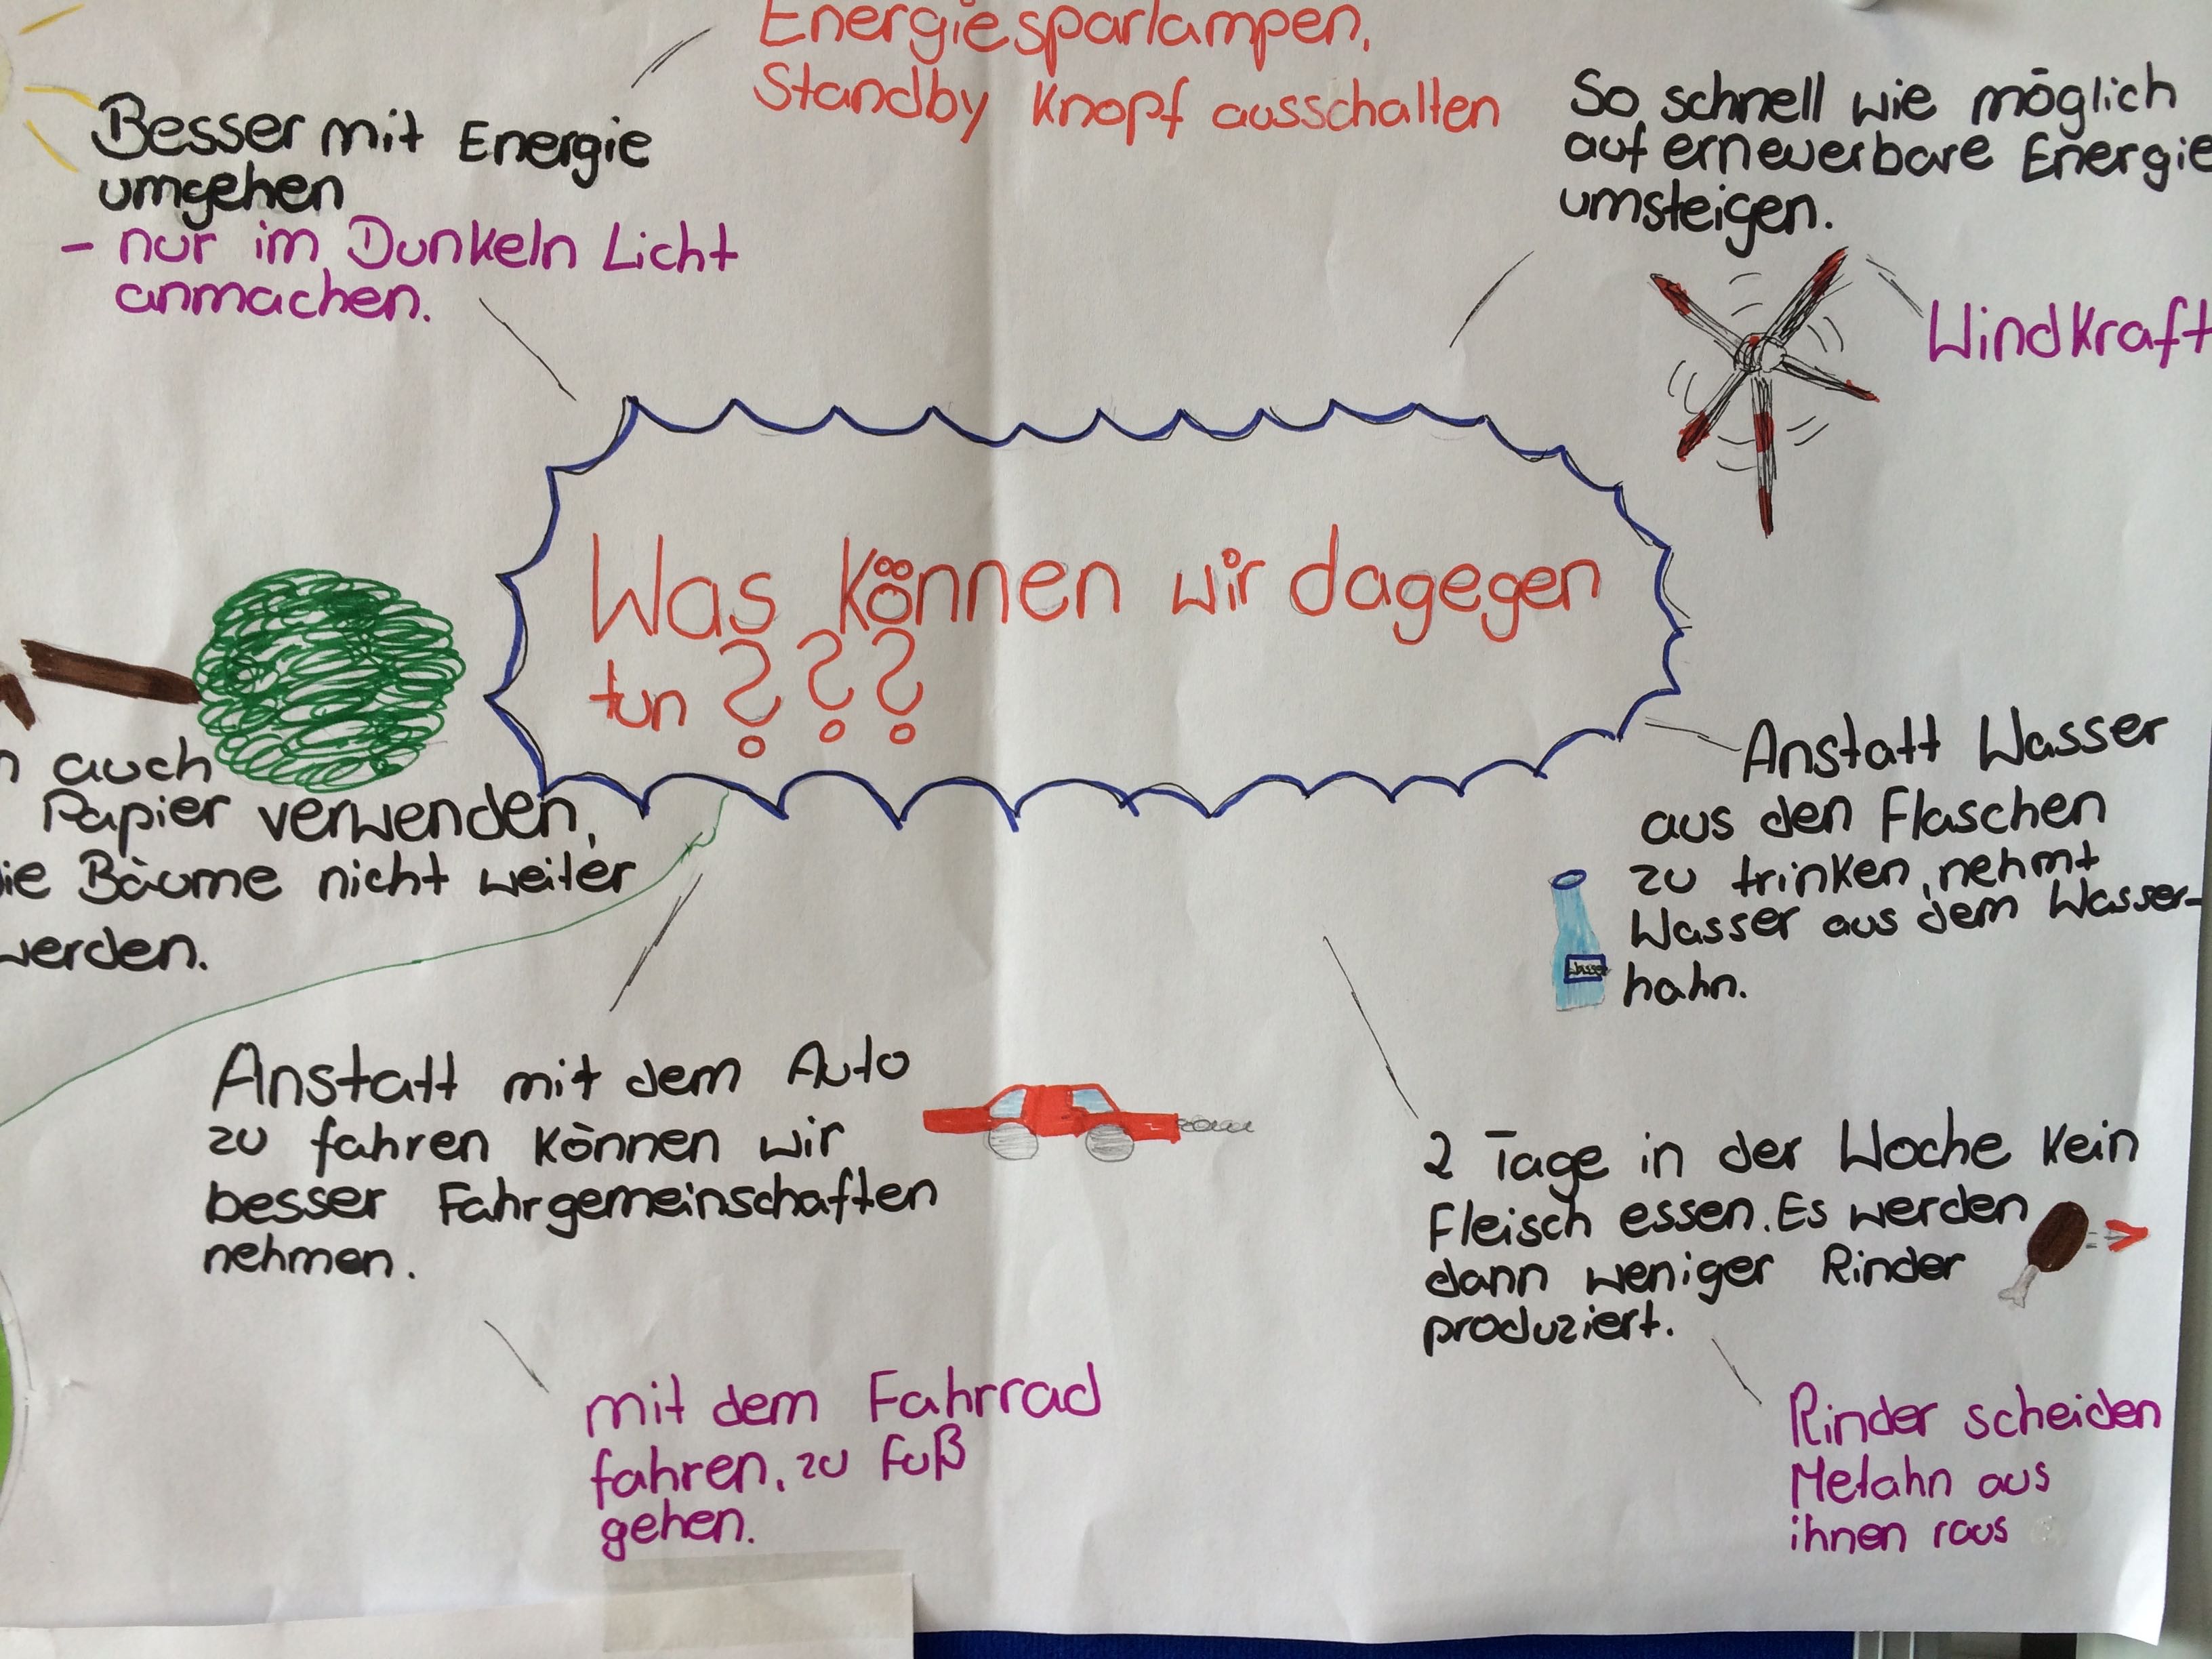 Energiesparlampen,
Standby Knopf ausschalten
Besser mit Energie
umgehen
- nur im Dunkeln Licht
anmachen.
So schnell wie möglich
auf erneuerbare Energie
umsteigen.
Windkraft
Was können wir dagegen
tun ? ? ?
auch
Papier verwenden,
Bäume nicht weiter
werden.
Anstatt Wasser
aus den Flaschen
zu trinken, nehmt
Wasser aus dem Wasser-
hahn.
Wasser
Anstatt mit dem Auto
zu fahren können wir
besser Fahrgemeinschaften
nehmen.
mit dem Fahrrad
fahren, zu Fuß
gehen.
2 Tage in der Woche kein
Fleisch essen. Es werden
dann weniger Rinder
produziert.
Rinder scheiden
Metahn aus
ihnen raus